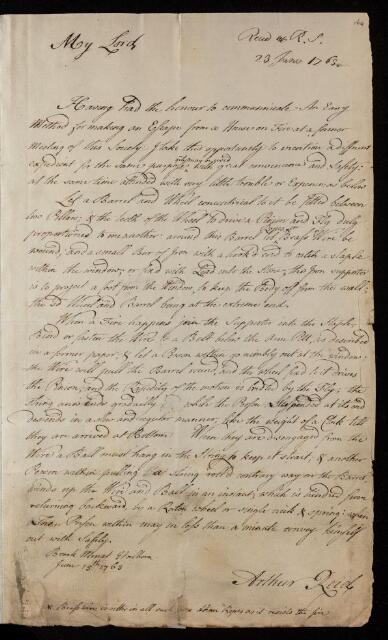 My Lord
Read at R. S.
23 June 1763.
Having had the honour to communicate An Easy
Method for making an Escape from a House on Fire at a former
Meeting of this Society I take this opportunity to mention a different
expedient for the same purpose with great convenience and Safety;
at the same time attended with very little trouble or Expence as below
Let a Barrel and Wheel concentrical to it be fitted between
two Pillars, & the teeth of the Wheel to drive a Pinion and Fly duly
proportioned to one another: around this Barrel let Brass Wire be
wound, and a small Bar of Iron with a hook'd end to with a staple
within the window; or Lead with Lead into the Stone; this Iron supporter
is to project a foot from the Window, to keep the Body off from the wall;
the Sd Wheel and Barrel being at the extreme end.
When a Fire happens join the Supporter into the Staple,
Bend or fasten the Wire to a Belt below the Arm Pitt, as described
in a former paper; & let a Person within assembly out at the Window:
the Wire will pull the Barrel round, and the wheel fixd to it drives
the Pinion, and the Rapidity of the motion is limited by the Fly; the
String unwinds gradually while the Person Suspended at its end
descends in a slow and regular manner, like the weight of a Clock till
they are arrived at Bottom. When they are disengaged from the
Wire a Ball must hang in the String to keep it strait, & another
Person within pulling a String wound contrary way on the Barrel,
winds up the Wire and Ball in an instant, which is hindred from
returning backward by a Ratch Wheel or single click & spring: upon
Person within may in less than a minute convey himself
out with Safety.
Brook Street Holborn
June 15th 1763
Arthur Reid